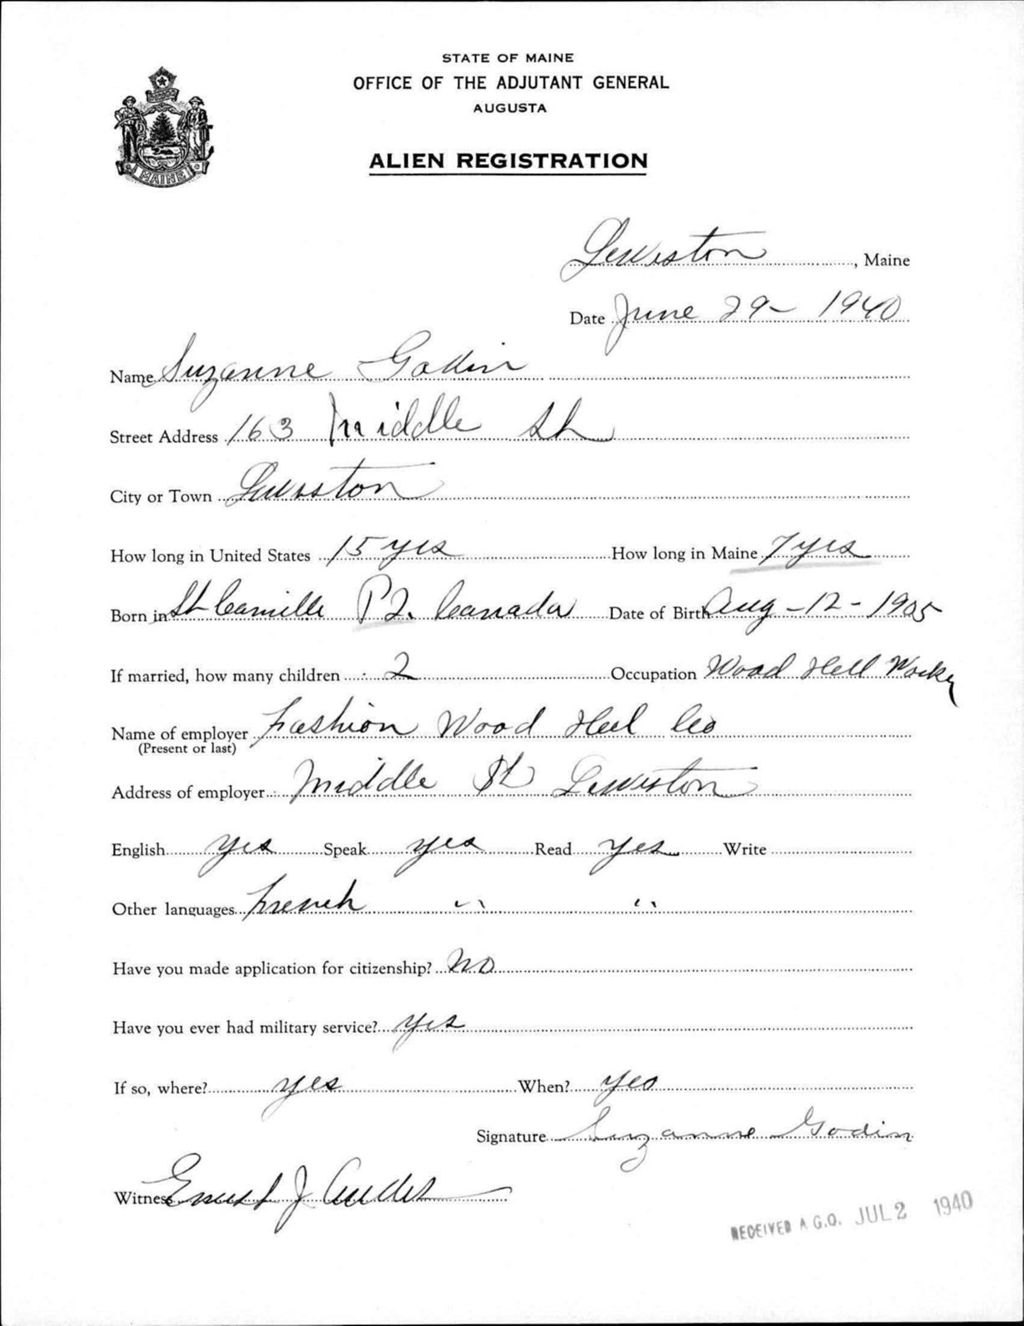 STATE OF MAINE
OFFICE OF THE ADJUTANT GENERAL
AUGUSTA
ALIEN REGISTRATION
MAINE
Lewiston, Maine
Date June 29- 1940
Name Suzanne Godin
Street Address 163 Middle St
City or Town Lewiston
How long in United States 15 yrs How long in Maine 7 yrs
Born in St Camille P.Q. Canada Date of Birth Aug-12-1905
If married, how many children 2 Occupation Wood Heel Worker
Name of employer Fashion Wood Heel Co
(Present or last)
Address of employer Middle St Lewiston
English yes Speak yes Read yes Write
Other languages French " "
Have you made application for citizenship? No
Have you ever had military service? yes
If so, where? yes When? yes
Signature Suzanne Godin
Witness Ernest J
RECEIVED A.G.O. JUL 2 1940